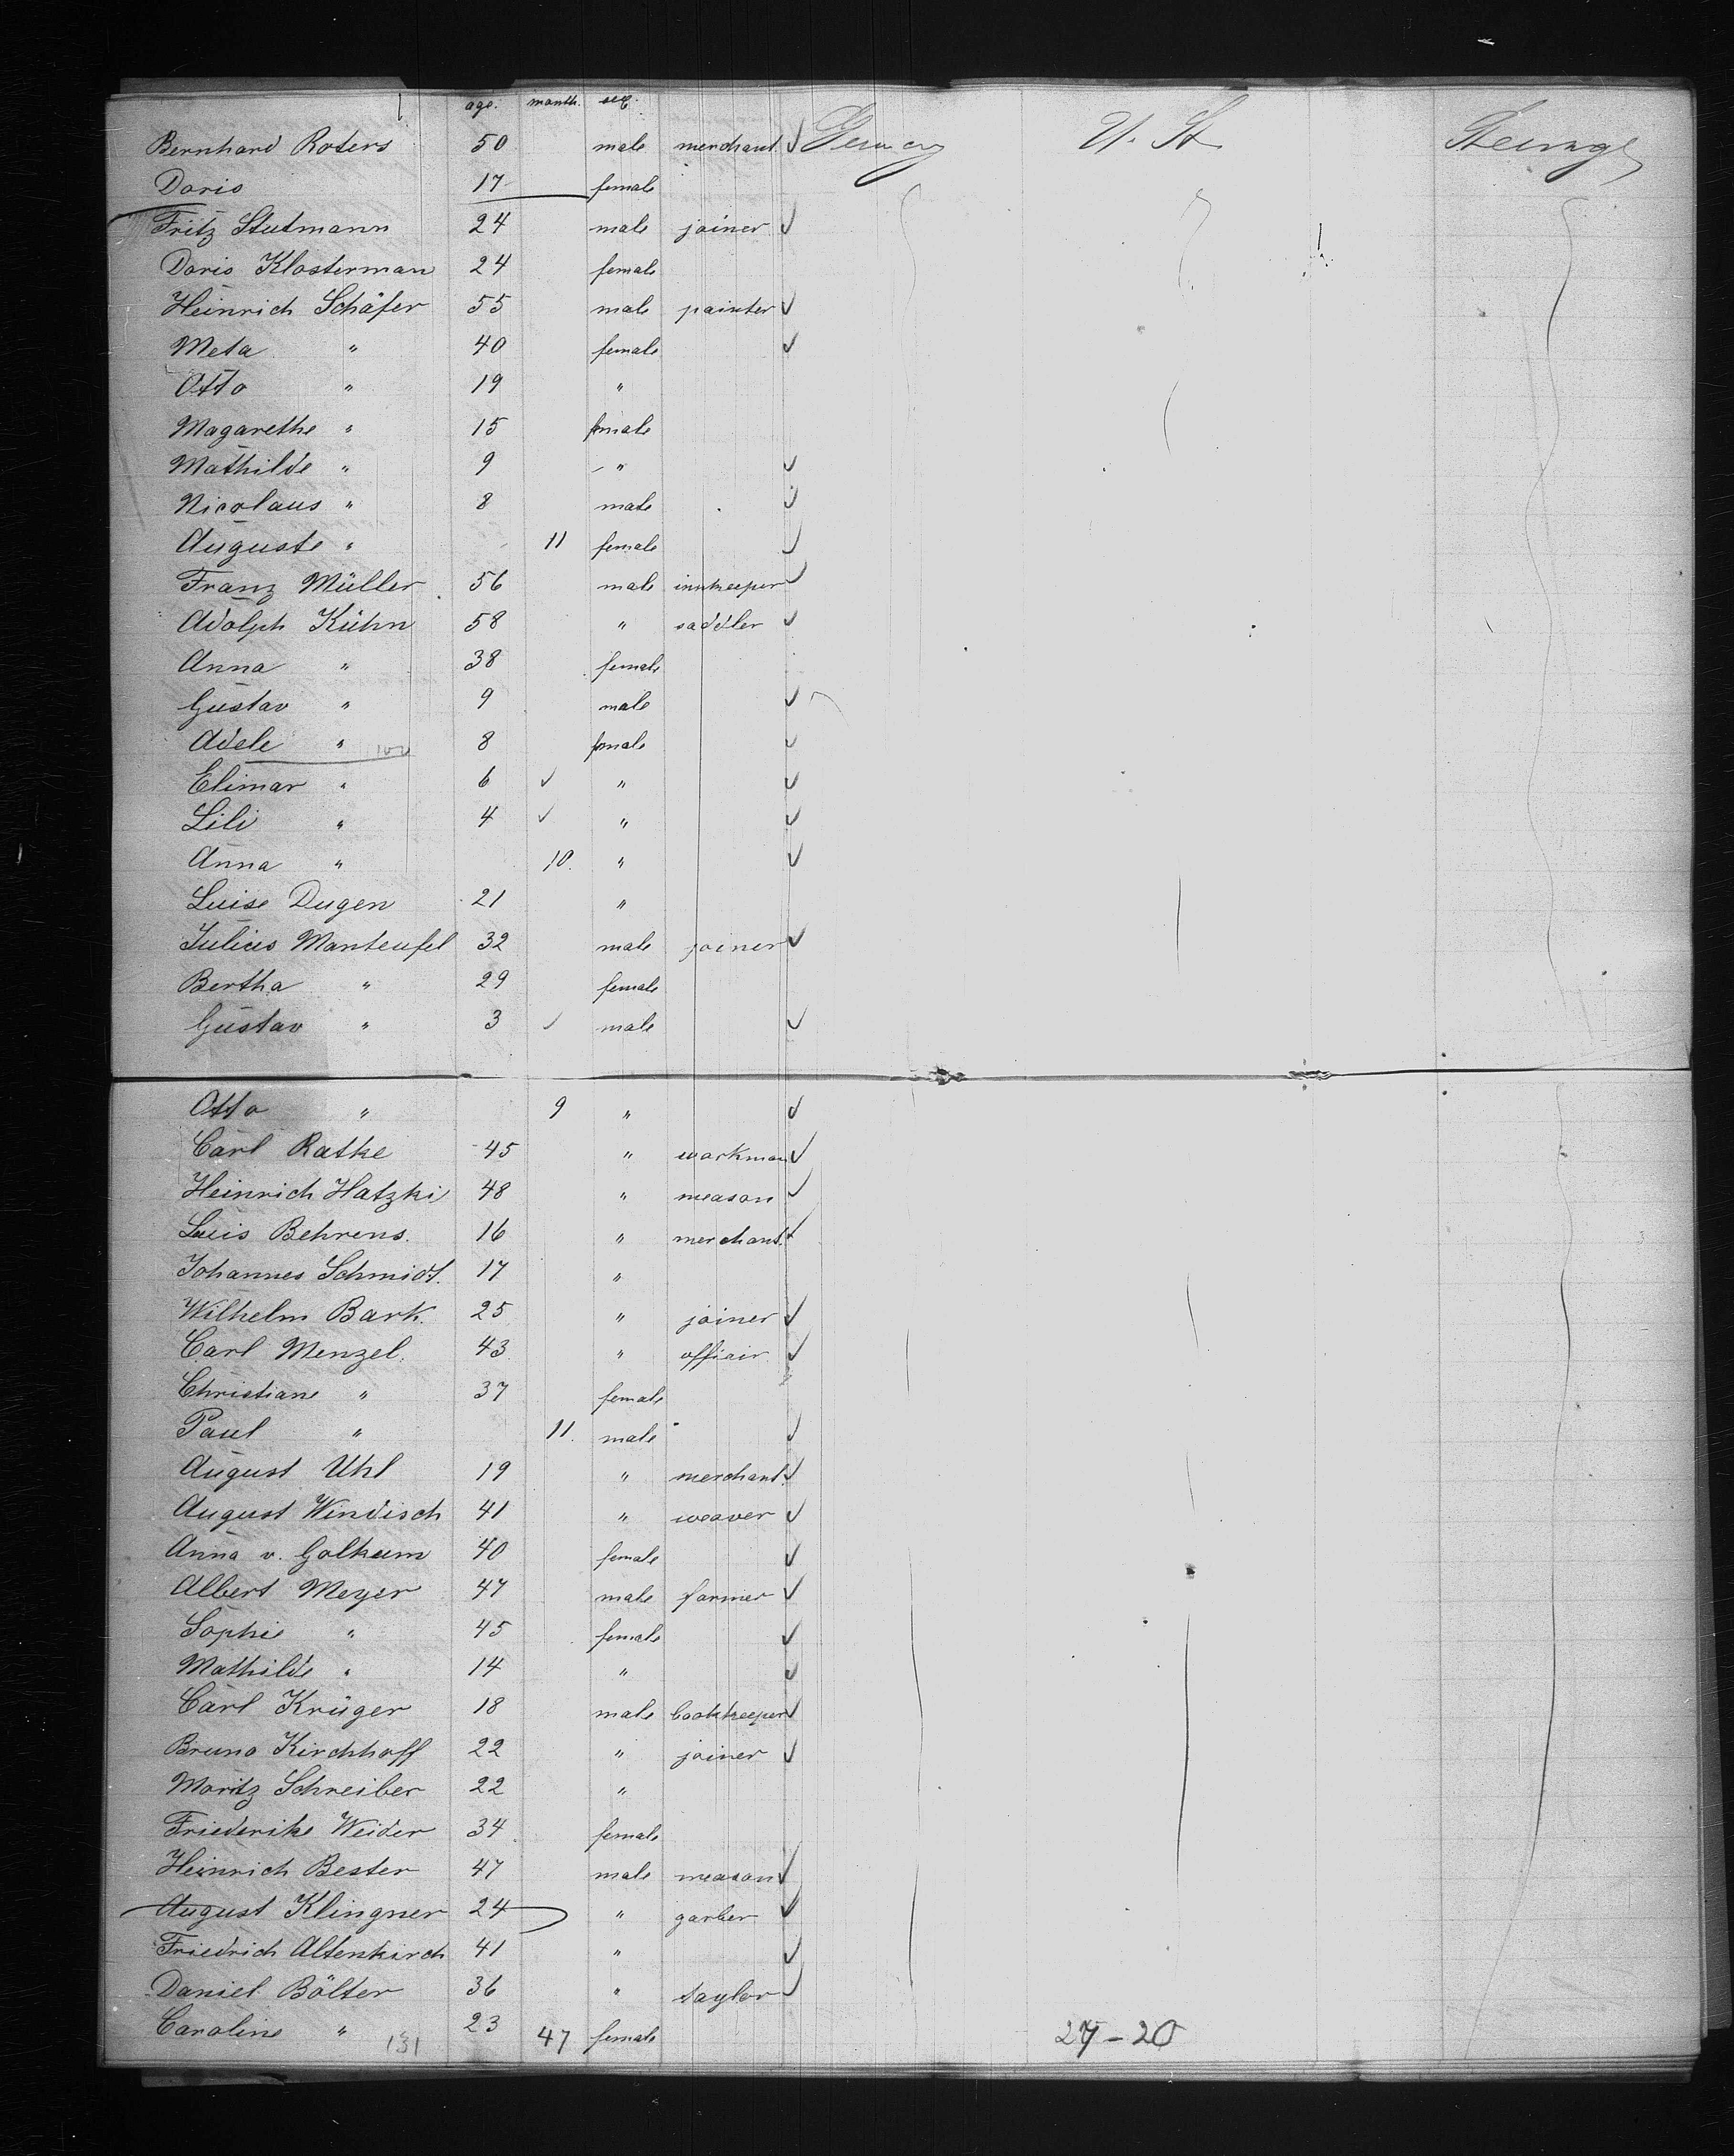 age. month. sex.
Bernhard Roters 50 male merchant Germany U. St. Steerage
Doris 17 female
Fritz Stutmann 24 male joiner
Doris Klosterman 24 female
Heinrich Schäfer 55 male painter
Meta " 40 female
Otto " 19 "
Magarethe " 15 female
Mathilde " 9 "
Nicolaus " 8 male
Auguste " 11 female
Franz Müller 56 male innkeeper
Adolph Kühn 58 " saddler
Anna " 38 female
Gustav " 9 male
Adele " 8 female
Elimar " 6 "
Lili " 4 "
Anna " 10. "
Luise Dugen 21 "
Julius Manteufel 32 male joiner
Bertha " 29 female
Gustav " 3 male
Otto " 9 "
Carl Ratke 45 " workman
Heinrich Hatzki 48 " meason
Luis Behrens. 16 " merchant.
Johannes Schmidt. 17 "
Wilhelm Bark. 25 " joiner
Carl Menzel. 43 " officir
Christiane " 37 female
Paul " 11. male
August Uhl 19 " merchant.
August Windisch 41 " weaver
Anna v. Golkum 40 female
Albert Meyer 47 male farmer
Sophie " 45 female
Mathilde " 14 "
Carl Krüger 18 male bookkeeper
Bruno Kirchhoff 22 " joiner
Moritz Schreiber 22 "
Friederike Weider 34 female
Heinrich Bester 47 male meason
August Klingner 24 " garber
Friedrich Altenkirch 41 "
Daniel Bölter 36 " taylor
Caroline " 23 47 female
131
27-20